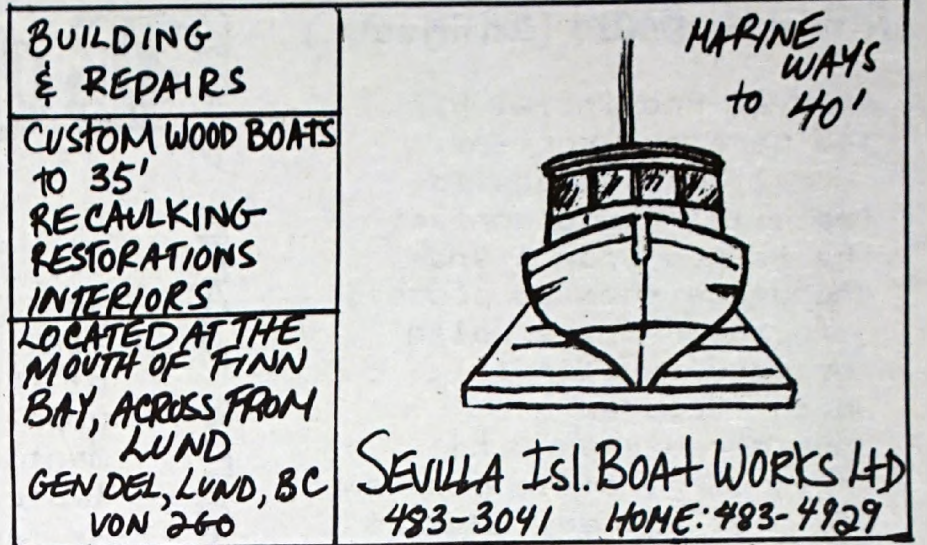 BUILDING
& REPAIRS
CUSTOM WOOD BOATS
to 35'
RECAULKING
RESTORATIONS
INTERIORS
LOCATED AT THE
MOUTH OF FINN
BAY, ACROSS FROM
LUND
GEN DEL, LUND, BC
VON 2GO
MARINE
WAYS
to 40'
SEVILLA Isl. BOAt WORKS LtD
483-3041 HOME: 483-4929